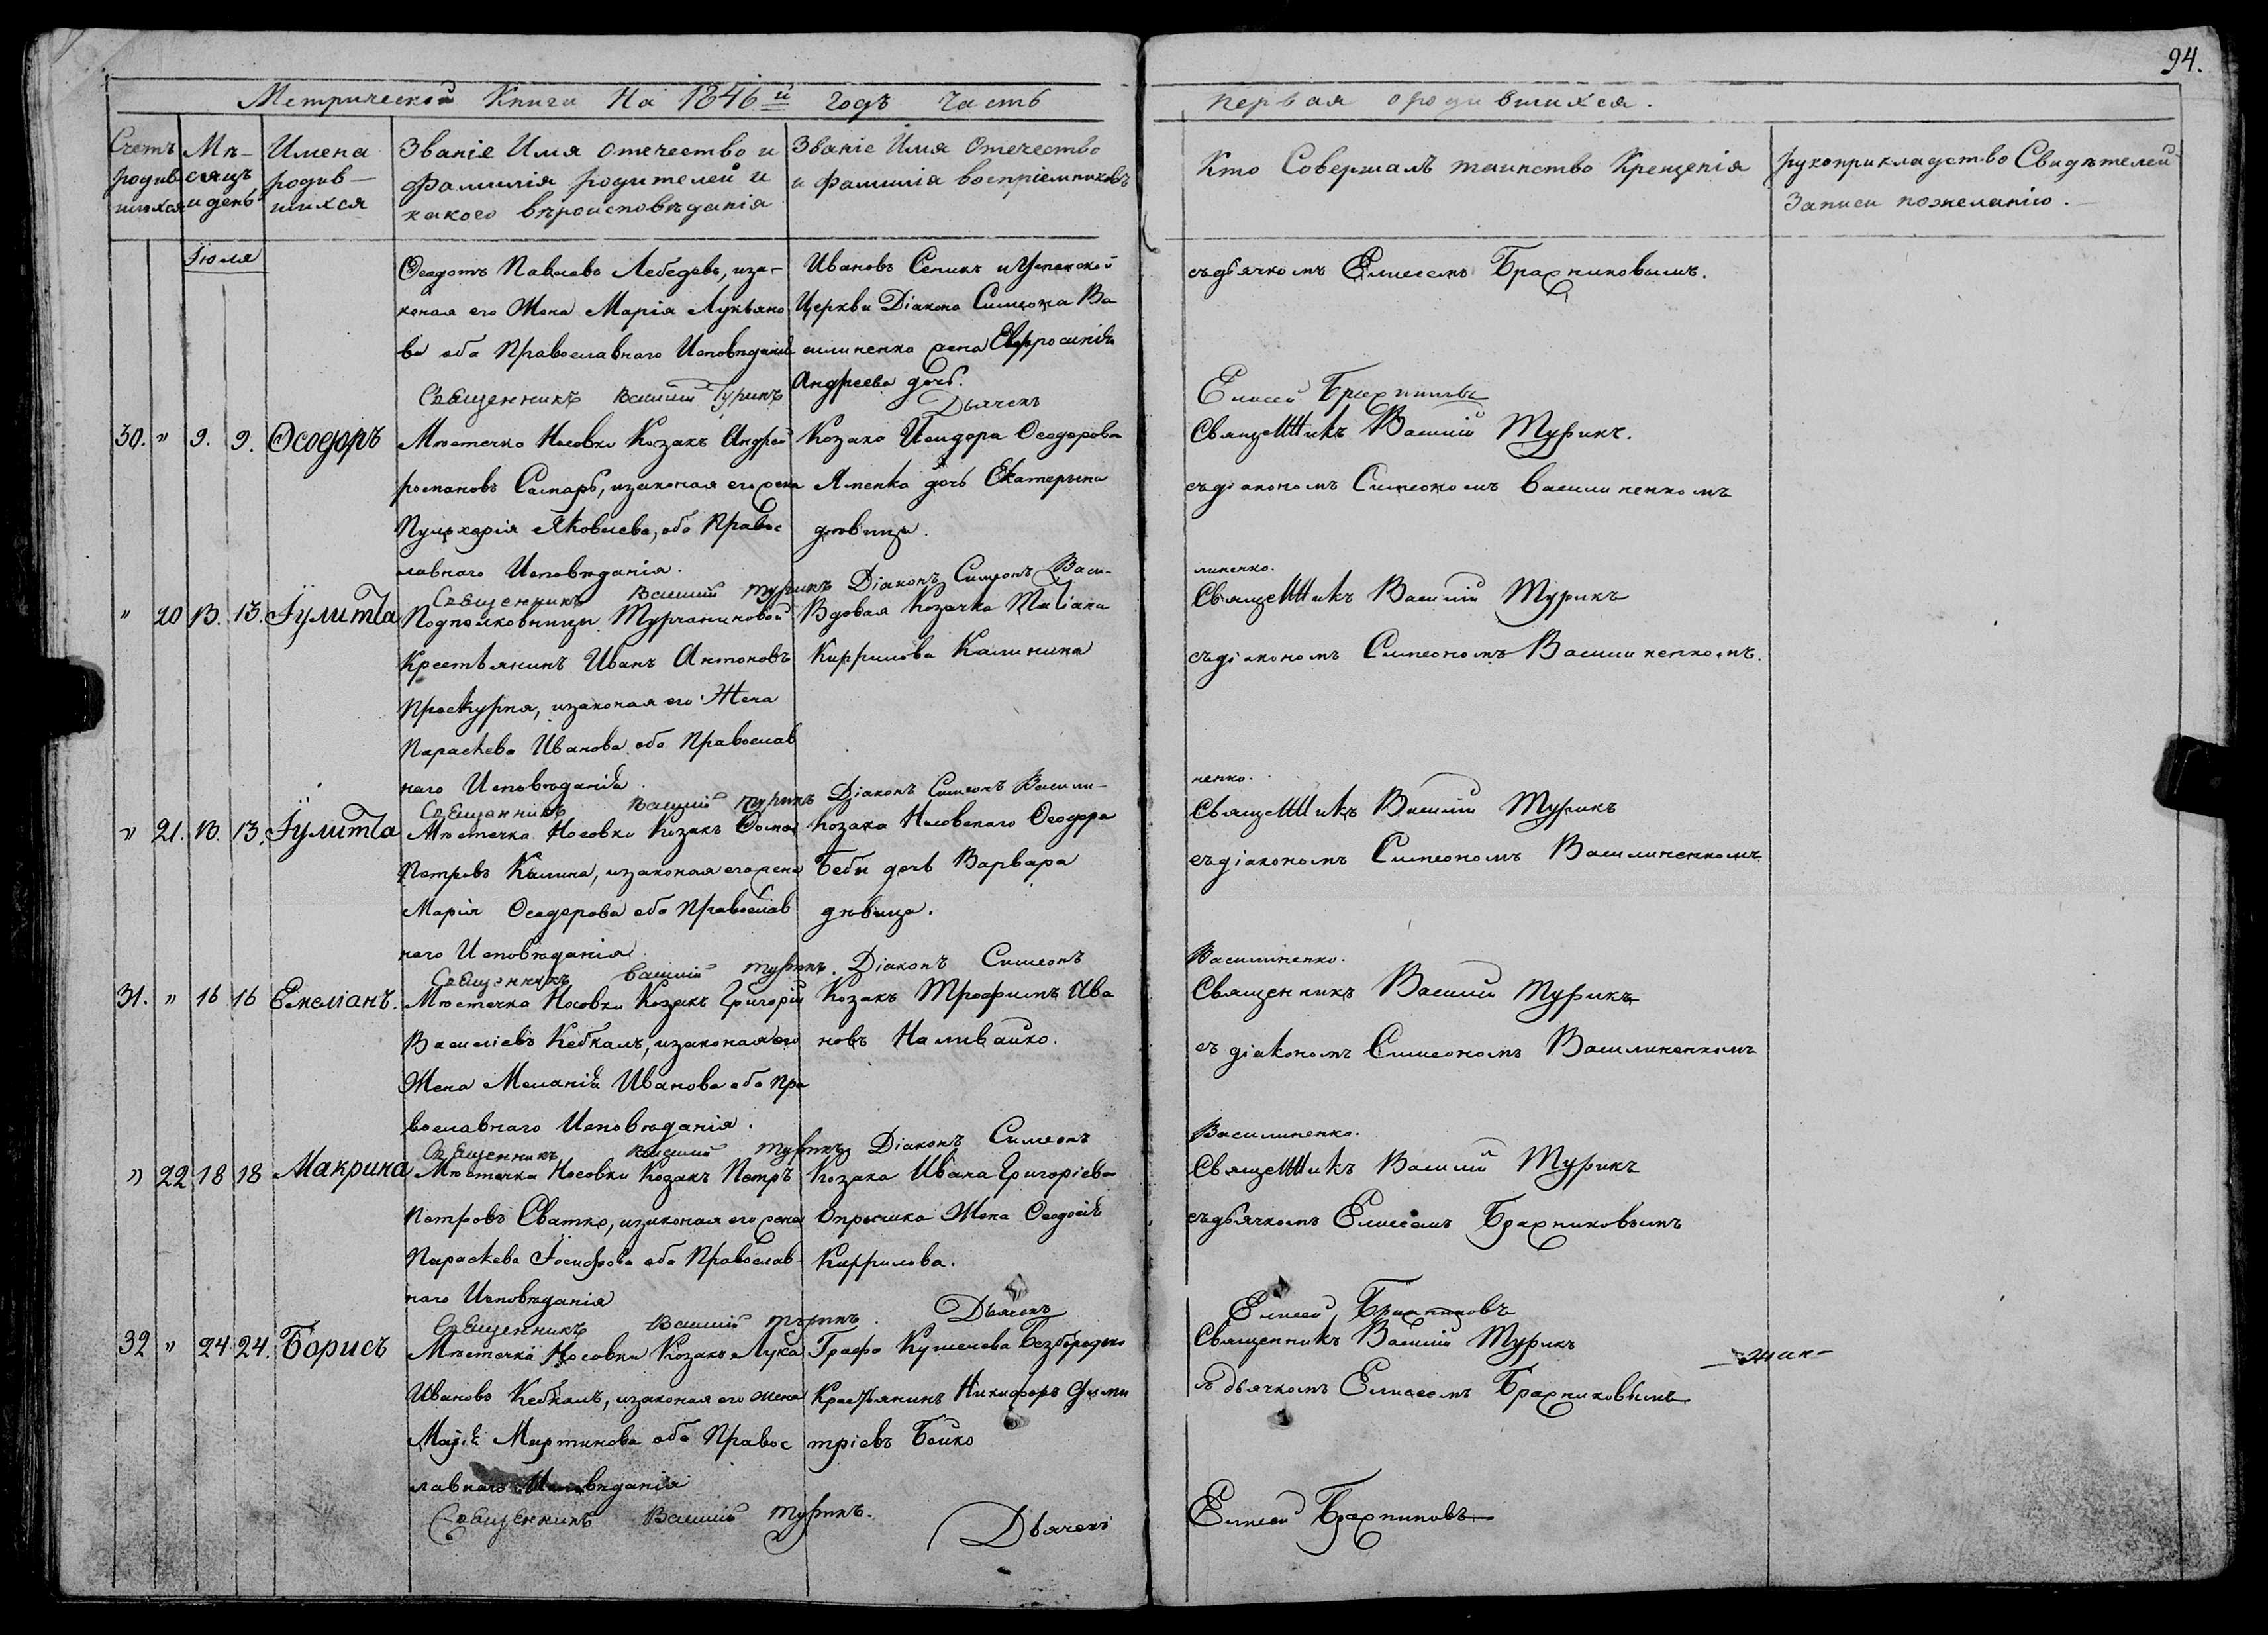 94.
Метрической Книги На 1846й годъ часть
первая о родившихся.
Счетъ родив шихся
Мѣ- сяцъ и день
Имена родив- шихся
Званіе Имя Отечество и фамилія родителей и какого вѣроисповѣданія
Званіе Имя Отечество и фамилія воспріемниковъ
Кто Совершалъ таинство Крещенія
рукоприкладство Свидѣтелей Записи пожеланію.
Іюля
Ѳеодотъ Павлово Лебедевъ, иза-
коная его Жена Марія Лукьяно
ва оба Православнаго Исповѣданія
Священникъ Василій Турикъ
Ивановъ и Успенской
Церкви Діакона Симеона Ва
силиненка жена Евфросинія
Андреева дочь.
Дьячекъ
съдьячкомъ Елисеемъ Брахниковымъ.
Елисей Брахниковъ
30. " 9. 9. Ѳеодоръ
Мѣстечка Носовки Козакъ Андрей
романовъ изаконая его жена
Пульхерія Яковлева, оба Правос
лавнаго Исповѣданія.
Священникъ Василій Турикъ
Козака Исидора Ѳеодорова
дочь Екатерина
дѣвица.
Діаконъ Симеонъ Васи-
Священникъ Василій Турикъ.
съдіакономъ Симеономъ Василиненкомъ
линенко.
" 20 13. 13. Іулитта
Подполковницы Турчаниновой
Крестьянинъ Иванъ Антоновъ
Проскурня, изаконая его Жена
Параскева Иванова оба Православ
наго Исповѣданія.
Священникъ Василій Турикъ
Вдовая Козачка Татіана
Киррилова Калинина
Діаконъ Симеонъ Васили-
Священникъ Василій Турикъ
съдіакономъ Симеономъ Василиненкомъ.
ненко.
" 21. 13. 13. Іулитта
Мѣстечка Носовки Козакъ
Петровъ Калина, изаконая его жена
Марія Ѳеодорова оба Православ
наго Исповѣданія.
Священникъ Василій Турикъ.
Козака Носовскаго Ѳеодора
дочь Варвара
дѣвица.
Діаконъ Симеонъ
Священникъ Василій Турикъ
съдіакономъ Симеономъ Василиненкомъ
Василиненко.
31. " 16 16 Емеліанъ.
Мѣстечка Носовки Козакъ Григорій
Василіевъ Кебкалъ, изаконая его
Жена Меланія Иванова оба Пра
вославнаго Исповѣданія.
Священникъ Василій Турикъ
Козакъ Трофимъ Ива
новъ Наливайко.
Діаконъ Симеонъ
Священникъ Василій Турикъ
съ діакономъ Симеономъ Василиненкомъ
Василиненко.
" 22 18 18 Макрина
Мѣстечка Носовки Козакъ Петръ
Петровъ Сватко, изаконая его жена
Параскева Іосифова оба Православ
наго Исповѣданія
Священникъ Василій Турикъ.
Козака Ивана Григоріева
Опрышка Жена Ѳеодосія
Киррилова.
Дьячекъ
Священникъ Василій Турикъ
съдьячкомъ Елисеемъ Брахниковымъ
Елисей Брахниковъ
32 " 24 24. Борисъ
Мѣстечка Носовки Козакъ Лука
Ивановъ Кебкалъ, изаконая его жена
Марія Мартинова оба Правос
лавнаго Исповѣданія
Священникъ Василій Турикъ.
Графа Кушелева Безбородко
Крестьянинъ Никифоръ Дими
тріевъ Бойко
Дьячекъ
Священникъ Василій Турикъ
съ дьячкомъ Елисеемъ Брахниковымъ
Елисей Брахниковъ